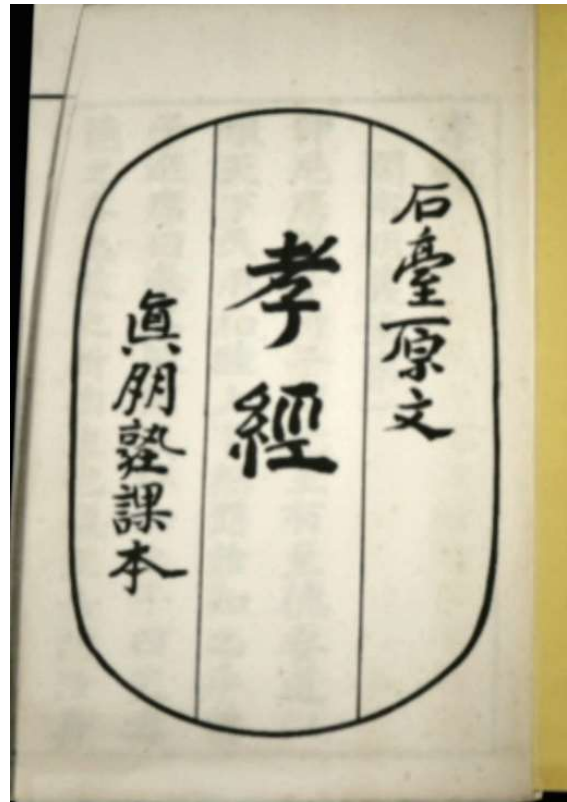 石臺原文
孝經
眞朋塾課本